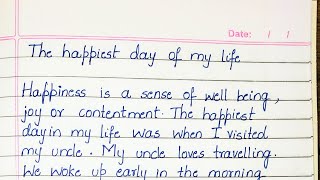 Date: / /
The happiest day of my life
Happiness is a sense of well being,
joy or contentment. The happiest
day in my life was when I visited
my uncle. My uncle loves travelling.
We woke up early in the morning.